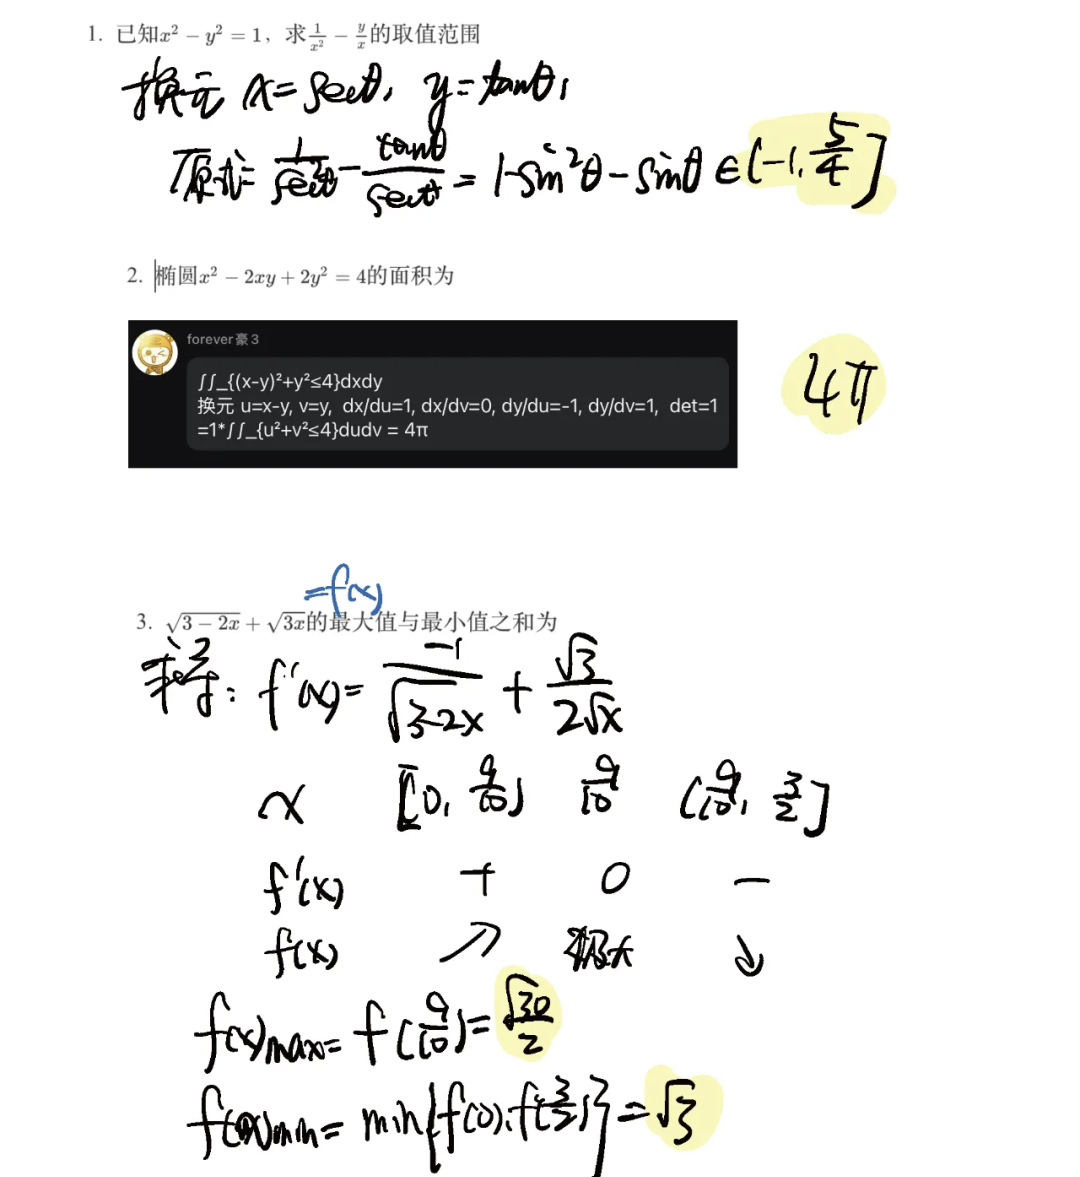 1. 已知x² − y² = 1，求1/x² − y/x的取值范围
换元 x = secθ, y = tanθ,
原式= 1/sec²θ − tanθ/secθ = 1-sin²θ-sinθ ∈ (-1, 5/4]
2. 椭圆x² − 2xy + 2y² = 4的面积为
forever豪3
∫∫_{(x-y)²+y²≤4}dxdy
换元 u=x-y, v=y, dx/du=1, dx/dv=0, dy/du=-1, dy/dv=1, det=1
=1*∫∫_{u²+v²≤4}dudv = 4π
4π
=f(x)
3. √(3 − 2x) + √(3x)的最大值与最小值之和为
求导: f'(x) = -1/√(3-2x) + √3/(2√x)
x [0, 9/10) 9/10 (9/10, 3/2]
f'(x) + 0 −
f(x) ↗ 极大 ↓
f(x)max = f(9/10) = √30/2
f(x)min = min{f(0), f(3/2)} = √3